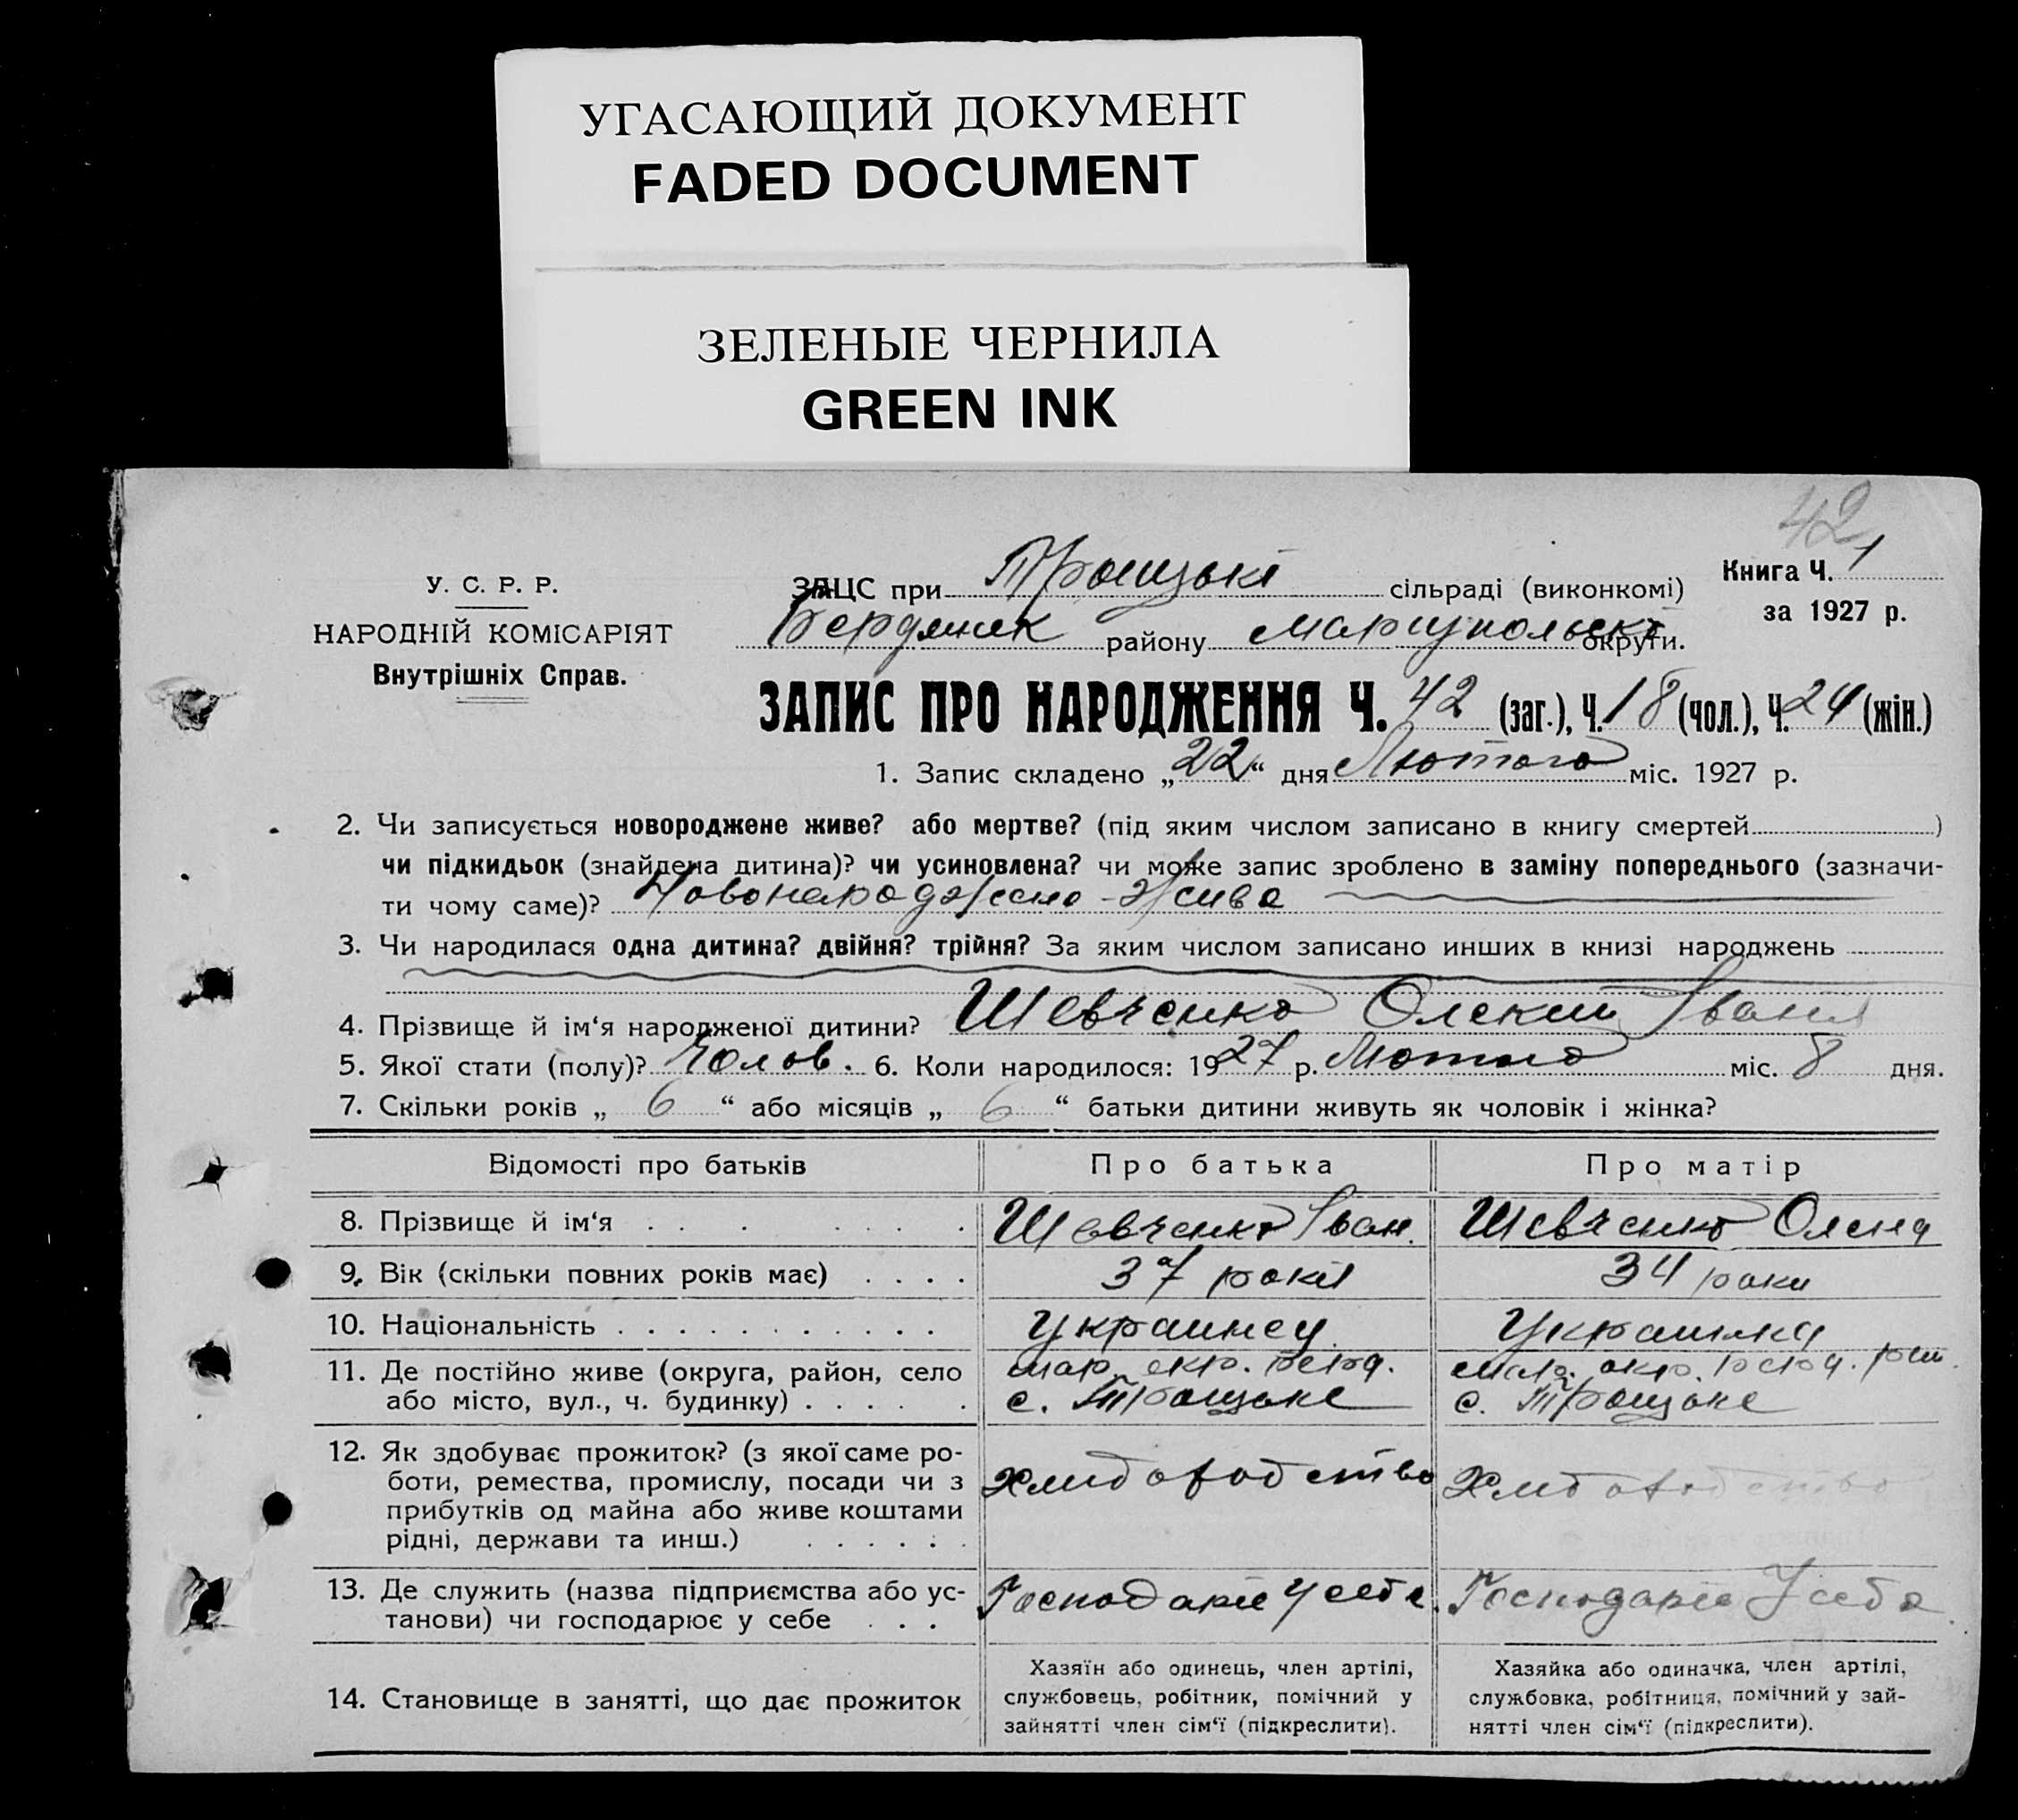 УГАСАЮЩИЙ ДОКУМЕНТ
FADED DOCUMENT
ЗЕЛЕНЫЕ ЧЕРНИЛА
GREEN INK
42
У. С. Р. Р.
НАРОДНІЙ КОМІСАРІЯТ
Внутрішніх Справ.
ЗАЦС при Троицькі сільраді (виконкомі)
Книга Ч. 1
за 1927 р.
Бердянск району Мариупольскі округи.
ЗАПИС ПРО НАРОДЖЕННЯ Ч. 42 (заг.), Ч. 18 (чол.), Ч. 24 (жін.)
1. Запис складено „22“ дня Лютого міс. 1927 р.
2. Чи записується новороджене живе? або мертве? (під яким числом записано в книгу смертей )
чи підкидьок (знайдена дитина)? чи усиновлена? чи може запис зроблено в заміну попереднього (зазначи-
ти чому саме)? Новонароджено Жива
3. Чи народилася одна дитина? двійня? трійня? За яким числом записано инших в книзі народжень
4. Прізвище й ім‘я народженої дитини? Шевченко Олекий Іванів
5. Якої стати (полу)? Чолов. 6. Коли народилося: 1927 р. Лютого міс. 8 дня.
7. Скільки років „ 6 “ або місяців „ 6 “ батьки дитини живуть як чоловік і жінка?
Відомості про батьків Про батька Про матір
8. Прізвище й ім‘я Шевченко Іван. Шевченко Олена
9. Вік (скільки повних років має) 37 років 34 роки
10. Національність Украинец Украинка
11. Де постійно живе (округа, район, село
або місто, вул., ч. будинку)
мар. окр. берд.
с. Троицьке
мар. окр. берд. рай.
с. Троицьке
12. Як здобуває прожиток? (з якої саме ро-
боти, ремества, промислу, посади чи з
прибутків од майна або живе коштами
рідні, держави та инш.)
Хлибородство
Хлибородство
13. Де служить (назва підприємства або ус-
танови) чи господарює у себе
Господарие У себе.
Господарие У себе
14. Становище в занятті, що дає прожиток
Хазяїн або одинець, член артілі,
службовець, робітник, помічний у
зайнятті член сім‘ї (підкреслити).
Хазяйка або одиначка, член артілі,
службовка, робітниця, помічний у зай-
нятті член сім‘ї (підкреслити).